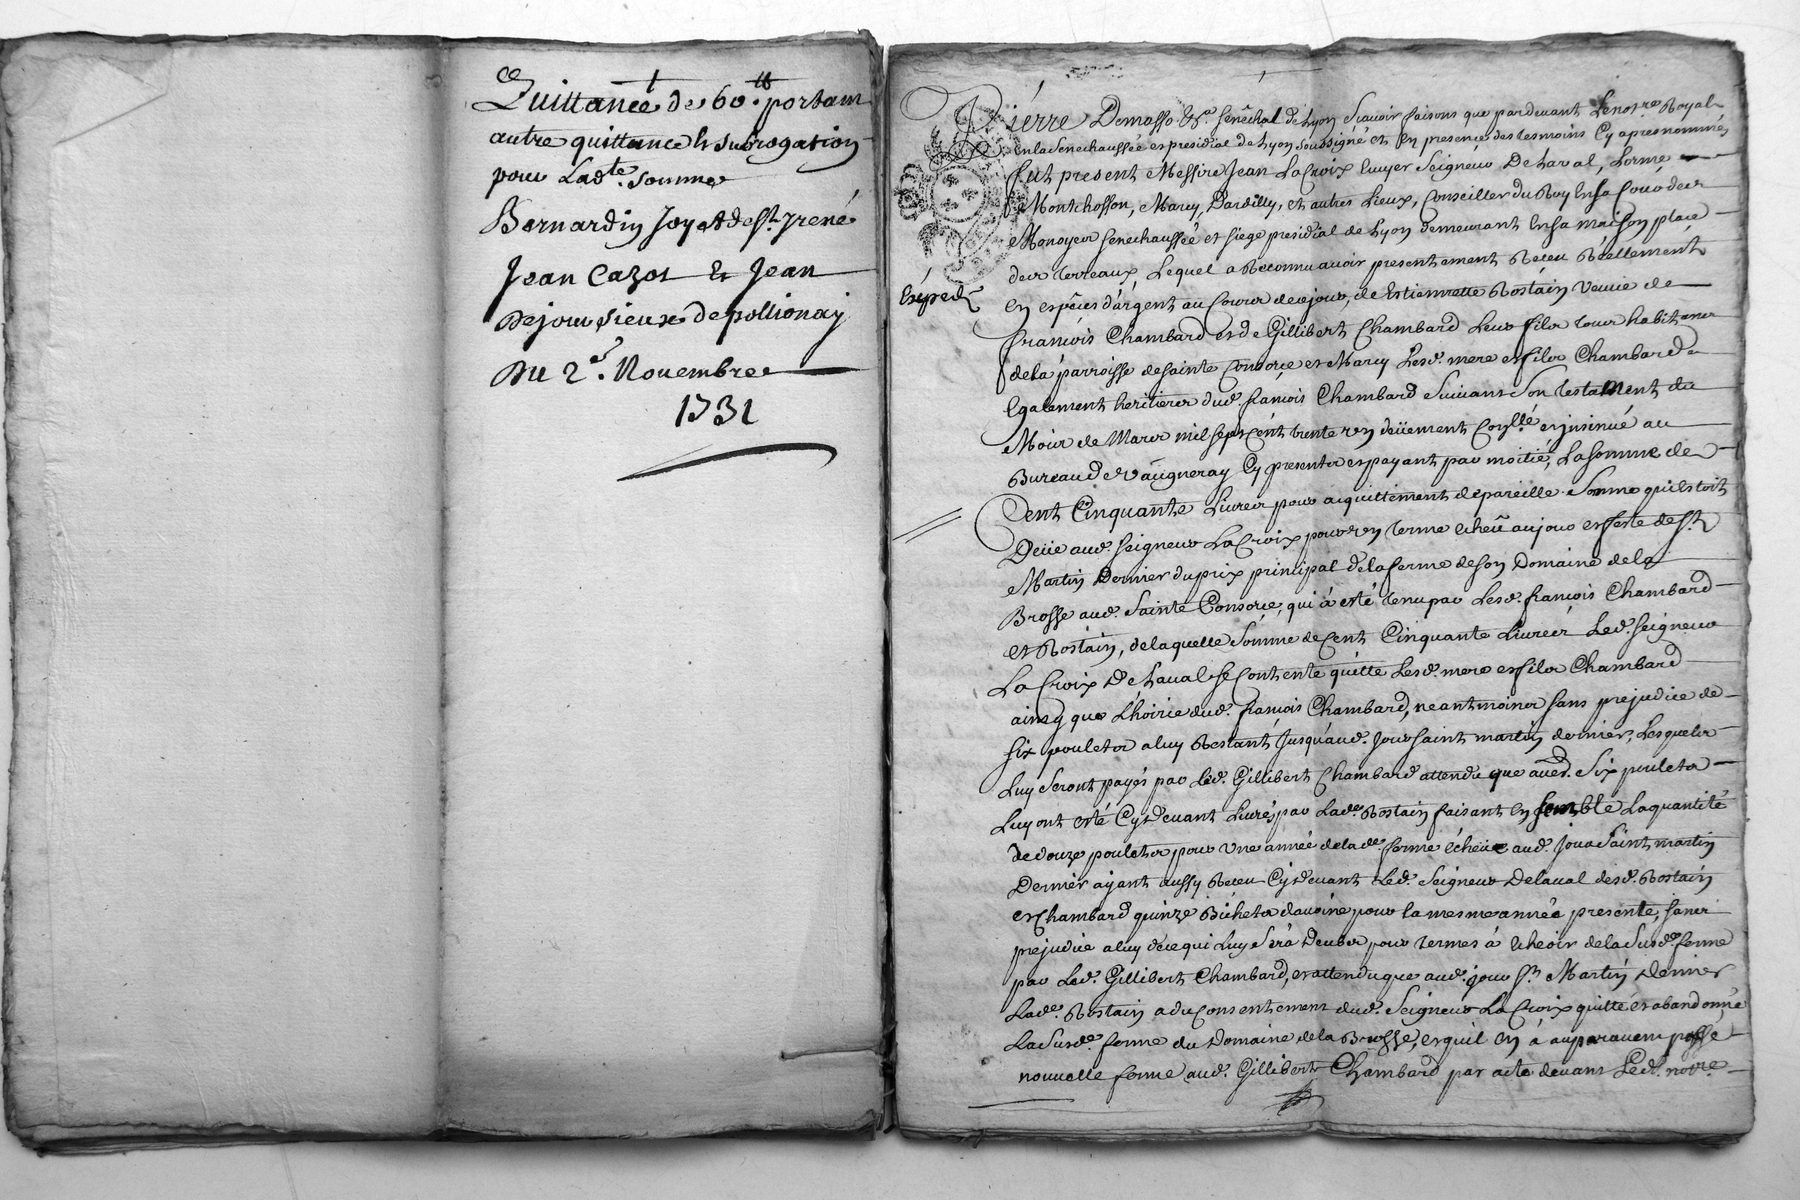 Quittance de 60.ᵗᵗ portant
autre quittance et subrogation
pour Ladᵗᵉ. somme
Bernardin Joyet de Sᵗ. Irené
Jean Cazot Et Jean
Dejoux sieux de pollionay
Du 2ᵉ. Novembre
1731
Pierre Demasso &ᶜᵃ. senêchal de Lyon Scavoir faisons que pardevant Lenotʳᵉ Royal
en la Senechaussée et presidial de Lyon soussigné et En presence des tesmoins Cy apres nommés
fut present Messire Jean LaCroix Ecuyer Seigneur De Laval, Lorme
Montchosson, Marcy, Dardilly, et autres Lieux, Conseiller du Roy En sa Cour des
Monoyes senechaussée et siege presidial de Lyon demeurant En sa maison place
des terreaux, Lequel a Reconnu avoir presentement Receu Réellement
Expedᵉ
En espêces d'argent au Cours de ce jour, de Estiennette Rostain veuve de
françois Chambard et de Gillibert Chambard Leur fils tous habitans
de la parroisse de Sainte Consorce et Marcy Lesd. mere et fils Chambard
Egalement heritiers dud. françois Chambard Suivant Son testament du
Mois de Mars mil sept cent trente un deüement Coñllé et insinué au
Bureau de Vaugneray Cy presents et payant par moitié, La Somme de
Cent Cinquante Livres pour aquittement de pareille Somme qu'Estoit
Deüe aud. seigneur LaCroix pour un terme êcheü au jour et feste de Sᵗ
Martin Dernier du prix principal de la ferme de Son Domaine de la
Brosse aud. Sainte Consorce, qui à esté tenu par Lesd. françois Chambard
et Rostain, de laquelle Somme de Cent Cinquante Livres Led. Seigneur
LaCroix De Laval se Contente quitte Lesd. mere et fils Chambard
ainsy que L'hoirie dud. françois Chambard, neantmoins sans prejudice de
six poulets a luy Restant Jusqu'aud. Jour saint martin dernier, Lesquels
Luy seront payés par led. Gillibert Chambard attendu que autres Six poulets
Luy ont esté Cy devant Livrés par Ladᵉ. Rostain faisant En semble La quantité
de douze poulets pour Une année de ladᵉ. ferme êcheüe aud. Jour Saint martin
Dernier ayant aussy Receu Cy devant Led. Seigneur De Laval desd. Rostain
et Chambard quinze Bichets d'avoine pour la mesme année presente, sans
prejudice a luy de ce qui Luy Sera Deub pour termes à Echeoir de la Susdᵉ ferme
par Led. Gillibert Chambard, et attendu que aud. jour Sᵗ. Martin dernier
Ladᵉ. Rostain a du Consentement dud. Seigneur LaCroix quitté et abandonné
La Susdᵉ. ferme du Domaine de la Brosse, et qu'il En à auparavent passé
nouvelle ferme aud. Gillibert Chambard par acte devant Led. notʳᵉ.